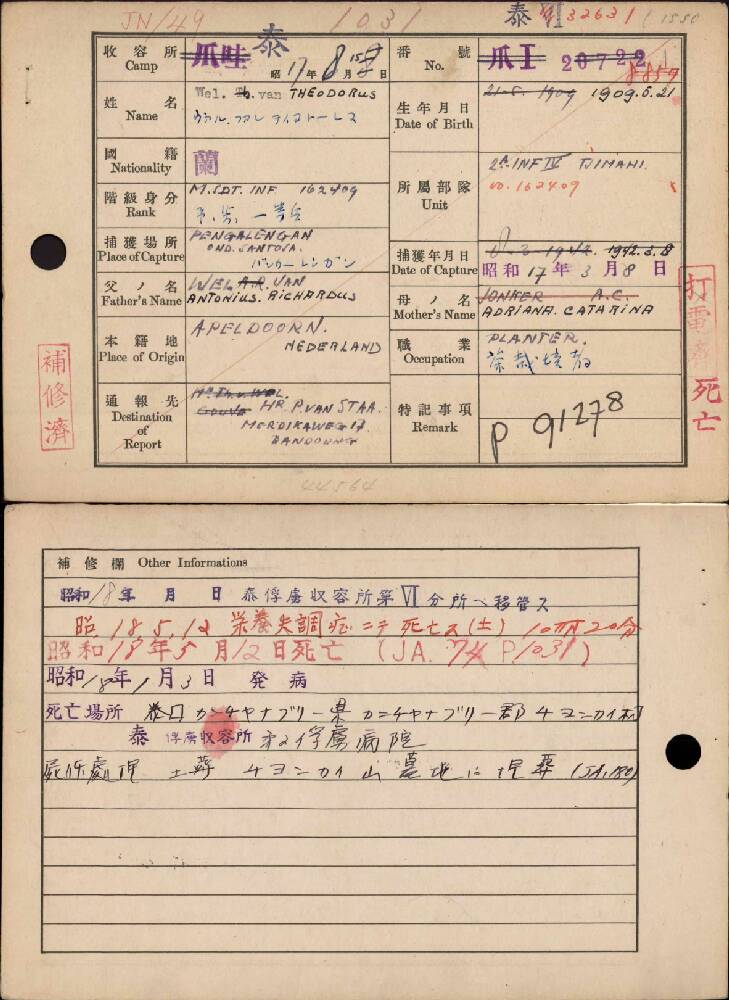 JN/49
1031
泰 VI 32631 (1550
收容所 Camp 爪哇 泰
昭17年8月15日
番號 No. 爪 I 20722
8859
姓名 Name Wel. Th. van THEODORUS
生年月日 Date of Birth 21-5. 1909 1909.5.21
國籍 Nationality 蘭
階級身分 Rank M.SDT. INF 162409
一等兵
所屬部隊 Unit 2e INF IV TJIMAHI.
no. 162409
捕獲場所 Place of Capture PENGALENGAN
OND. SANTOSA.
捕獲年月日 Date of Capture 8-3-1942. 1942.3.8
昭和17年3月8日
父ノ名 Father's Name WEL A.R. VAN
ANTONIUS. RICHARDUS
母ノ名 Mother's Name JONKER A.C.
ADRIANA. CATARINA
本籍地 Place of Origin APELDOORN.
NEDERLAND
職業 Occupation PLANTER.
通報先 Destination of Report
HR. P. VAN STAA.
MERDIKAWEG 17.
BANDOENG
特記事項 Remark P 91278
補修濟
打電濟
死亡
44564
補修欄 Other Informations
昭和18年 月 日 泰俘虜収容所第VI分所ヘ移管ス
昭 18.5.12 栄養失調症ニテ死亡ス(土) 10時20分
昭和18年5月12日死亡 (JA. 74 P1031)
昭和18年1月3日 発病
死亡場所 泰国カンチヤナブリー県カンチヤナブリー郡チヨンカイ村
泰俘虜収容所 第2俘虜病院
屍体處理 土葬 チヨンカイ山墓地ニ埋葬 (JA.180)